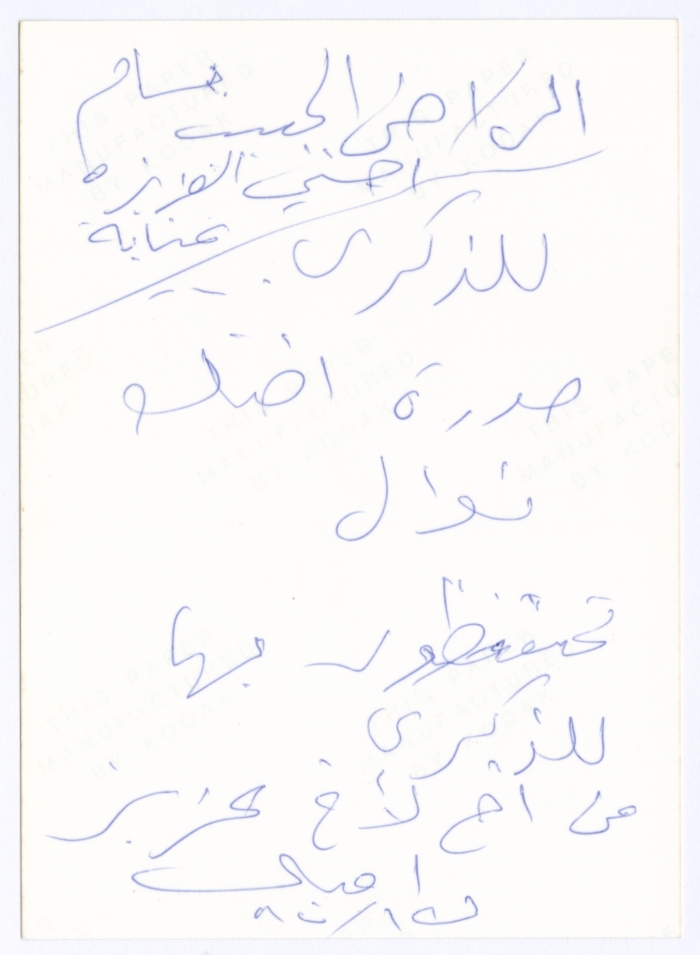 الى الاخ الحبيب بسام
اختي العزيزه
عناية
للذكرى
صورة اختك
نوال
تحتفظون بها
للذكرى
من اخ لاخ عزيز
THIS PAPER
MANUFACTURED
BY KODAK